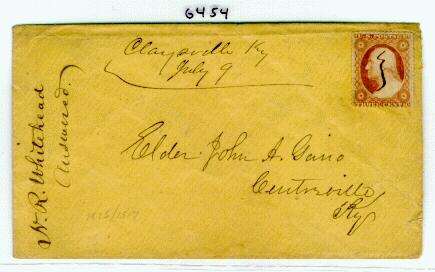 6454
Claysville Ky
July 9
U.S. POSTAGE
THREE CENTS
W. R. Whitehead
Answered.
Elder John A. Gano
Centreville
Ky